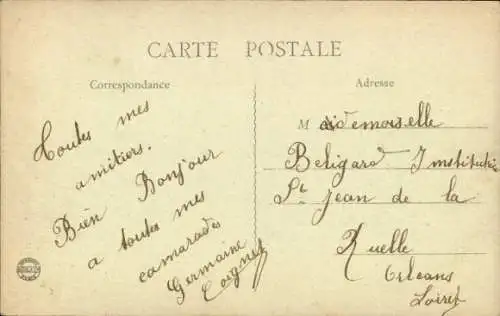 CARTE POSTALE
Correspondance
Toutes mes
amitiers.
Bien Bonjour
a toutes mes
camarades
Germaine
Coignet
Adresse
Mademoiselle
Beligard Institutrice
St Jean de la
Ruelle
Orleans
Loiret